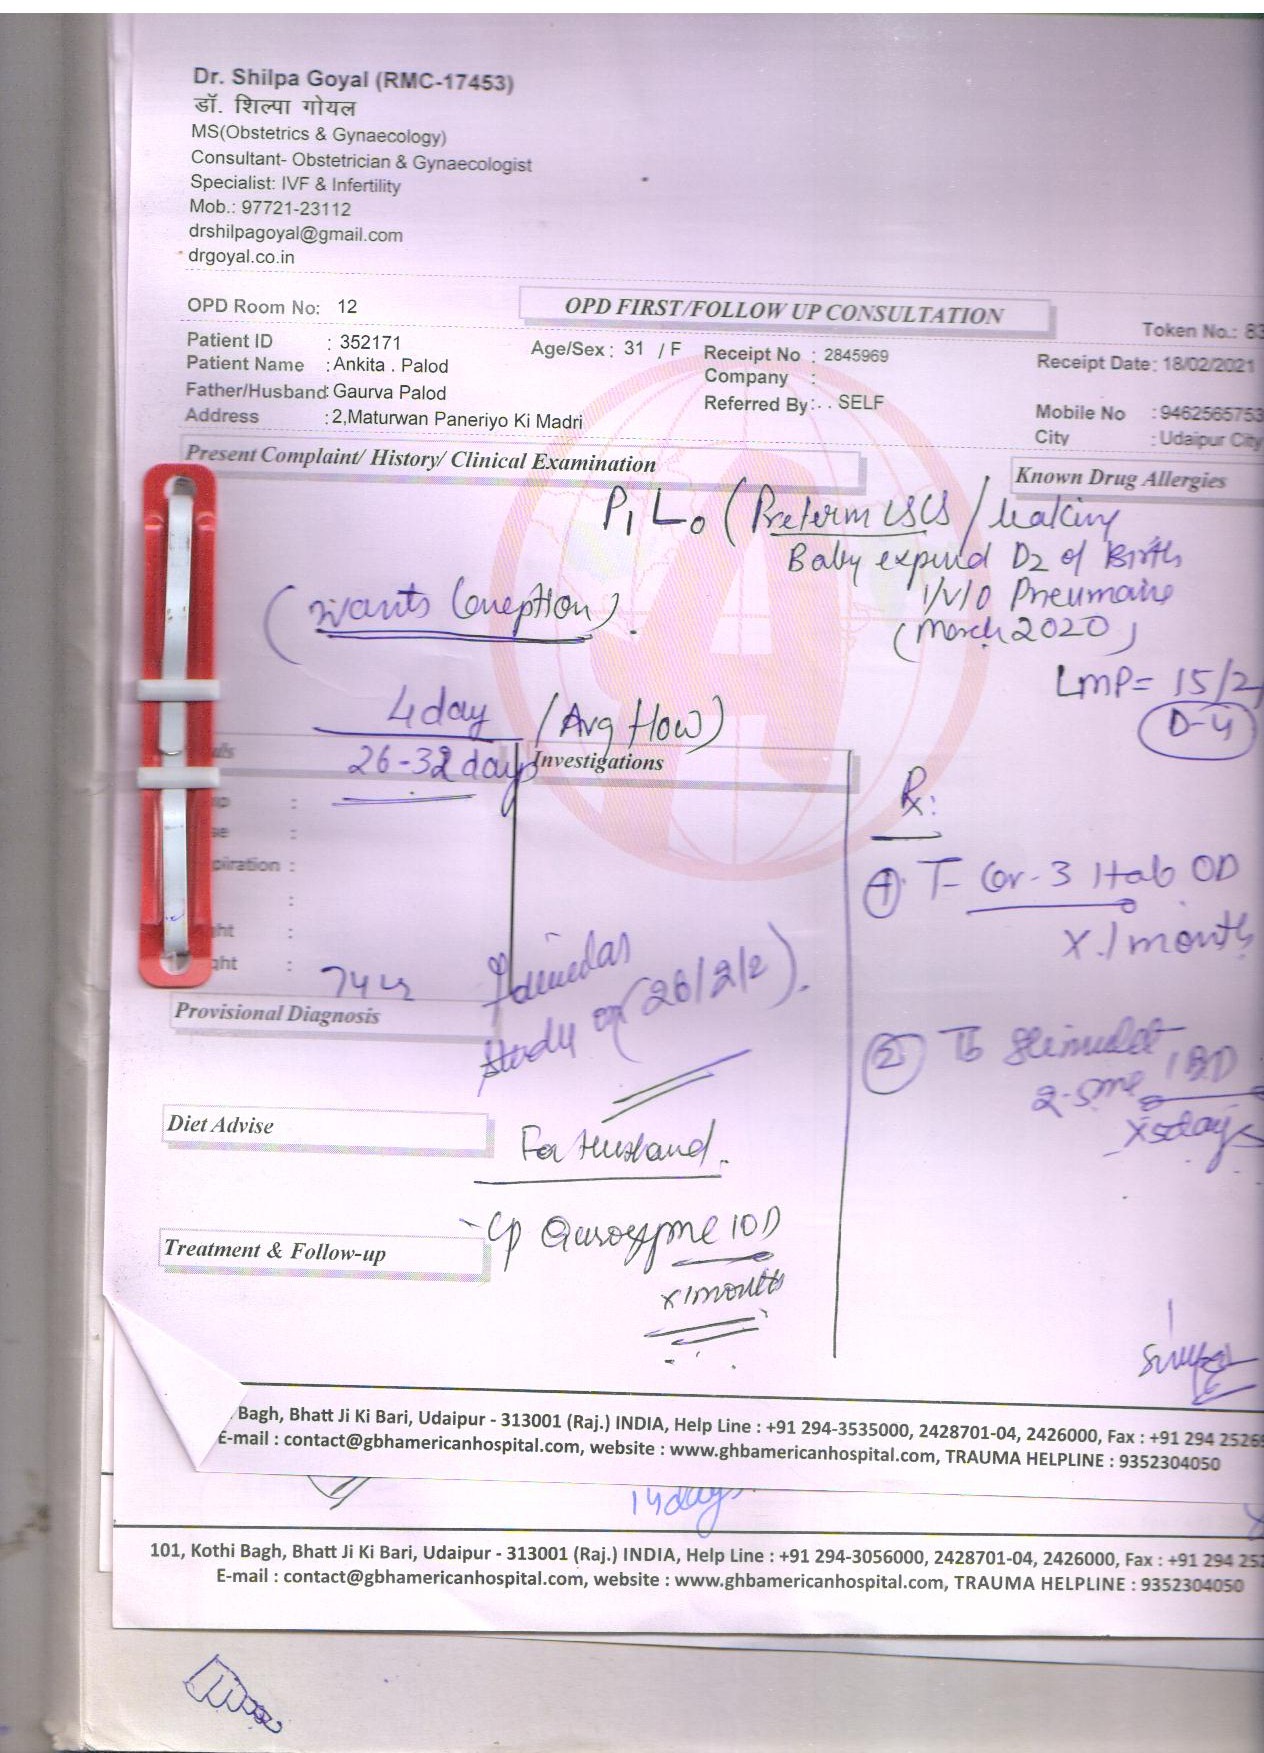 Dr. Shilpa Goyal (RMC-17453)
डॉ. शिल्पा गोयल
MS(Obstetrics & Gynaecology)
Consultant- Obstetrician & Gynaecologist
Specialist: IVF & Infertility
Mob.: 97721-23112
drshilpagoyal@gmail.com
drgoyal.co.in
OPD Room No: 12
OPD FIRST/FOLLOW UP CONSULTATION
Token No.: 83
Patient ID : 352171
Age/Sex : 31 / F
Receipt No : 2845969
Receipt Date: 18/02/2021
Patient Name : Ankita . Palod
Company :
Father/Husband: Gaurva Palod
Referred By: . . SELF
Mobile No : 9462565753
Address : 2,Maturwan Paneriyo Ki Madri
City : Udaipur City
Present Complaint/ History/ Clinical Examination
Known Drug Allergies
P1 L0 (Preterm LSCS / leaking
Baby expired D2 of Birth
I/V/O
(March 2020)
(wants Conception).
LMP= 15/2/
D-4
4day (Avg flow)
26-32 days
Investigations
Rx:
piration :
ght :
ght :
① T- Cor-3 1tab OD
x 1 month
study on (26/2/2 ).
Provisional Diagnosis
②
2.5mg 1BD
x5days
Diet Advise
For Husband.
1OD
x 1month
Treatment & Follow-up
Bagh, Bhatt Ji Ki Bari, Udaipur - 313001 (Raj.) INDIA, Help Line : +91 294-3535000, 2428701-04, 2426000, Fax : +91 294 2526
E-mail : contact@gbhamericanhospital.com, website : www.ghbamericanhospital.com, TRAUMA HELPLINE : 9352304050
14days
101, Kothi Bagh, Bhatt Ji Ki Bari, Udaipur - 313001 (Raj.) INDIA, Help Line : +91 294-3056000, 2428701-04, 2426000, Fax : +91 294 252
E-mail : contact@gbhamericanhospital.com, website : www.ghbamericanhospital.com, TRAUMA HELPLINE : 9352304050